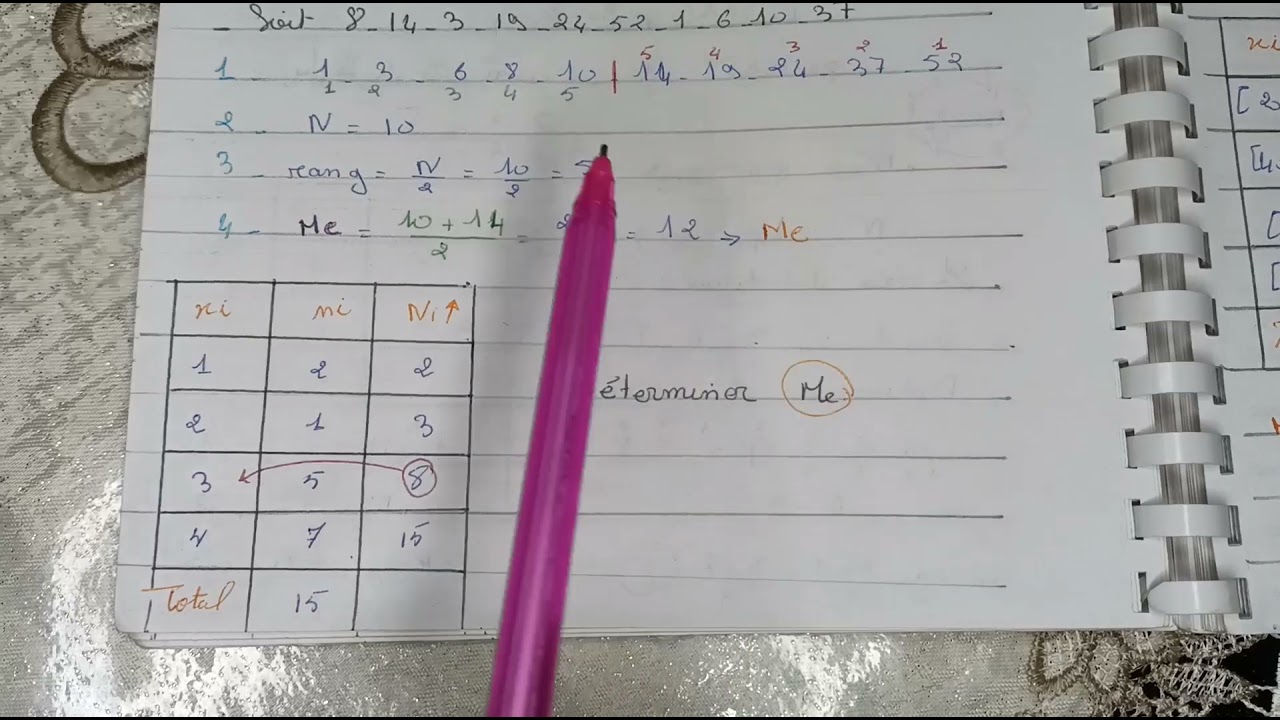 - Soit 8 - 14 - 3 - 19 - 24 - 52 - 1 - 6 - 10 - 37
5 4 3 2 1
1 - 1 - 3 - 6 - 8 - 10 | 14 - 19 - 24 - 37 - 52
1 2 3 4 5
2 - N = 10
3 - rang = N/2 = 10/2 = 5
4 - Me = 10 + 14 / 2 = 2 = 12 → Me
xi ni Ni ↑
1 2 2
2 1 3
3 5 8
4 7 15
Total 15
éterminer Me
xi
[ 2
[4,
[
[